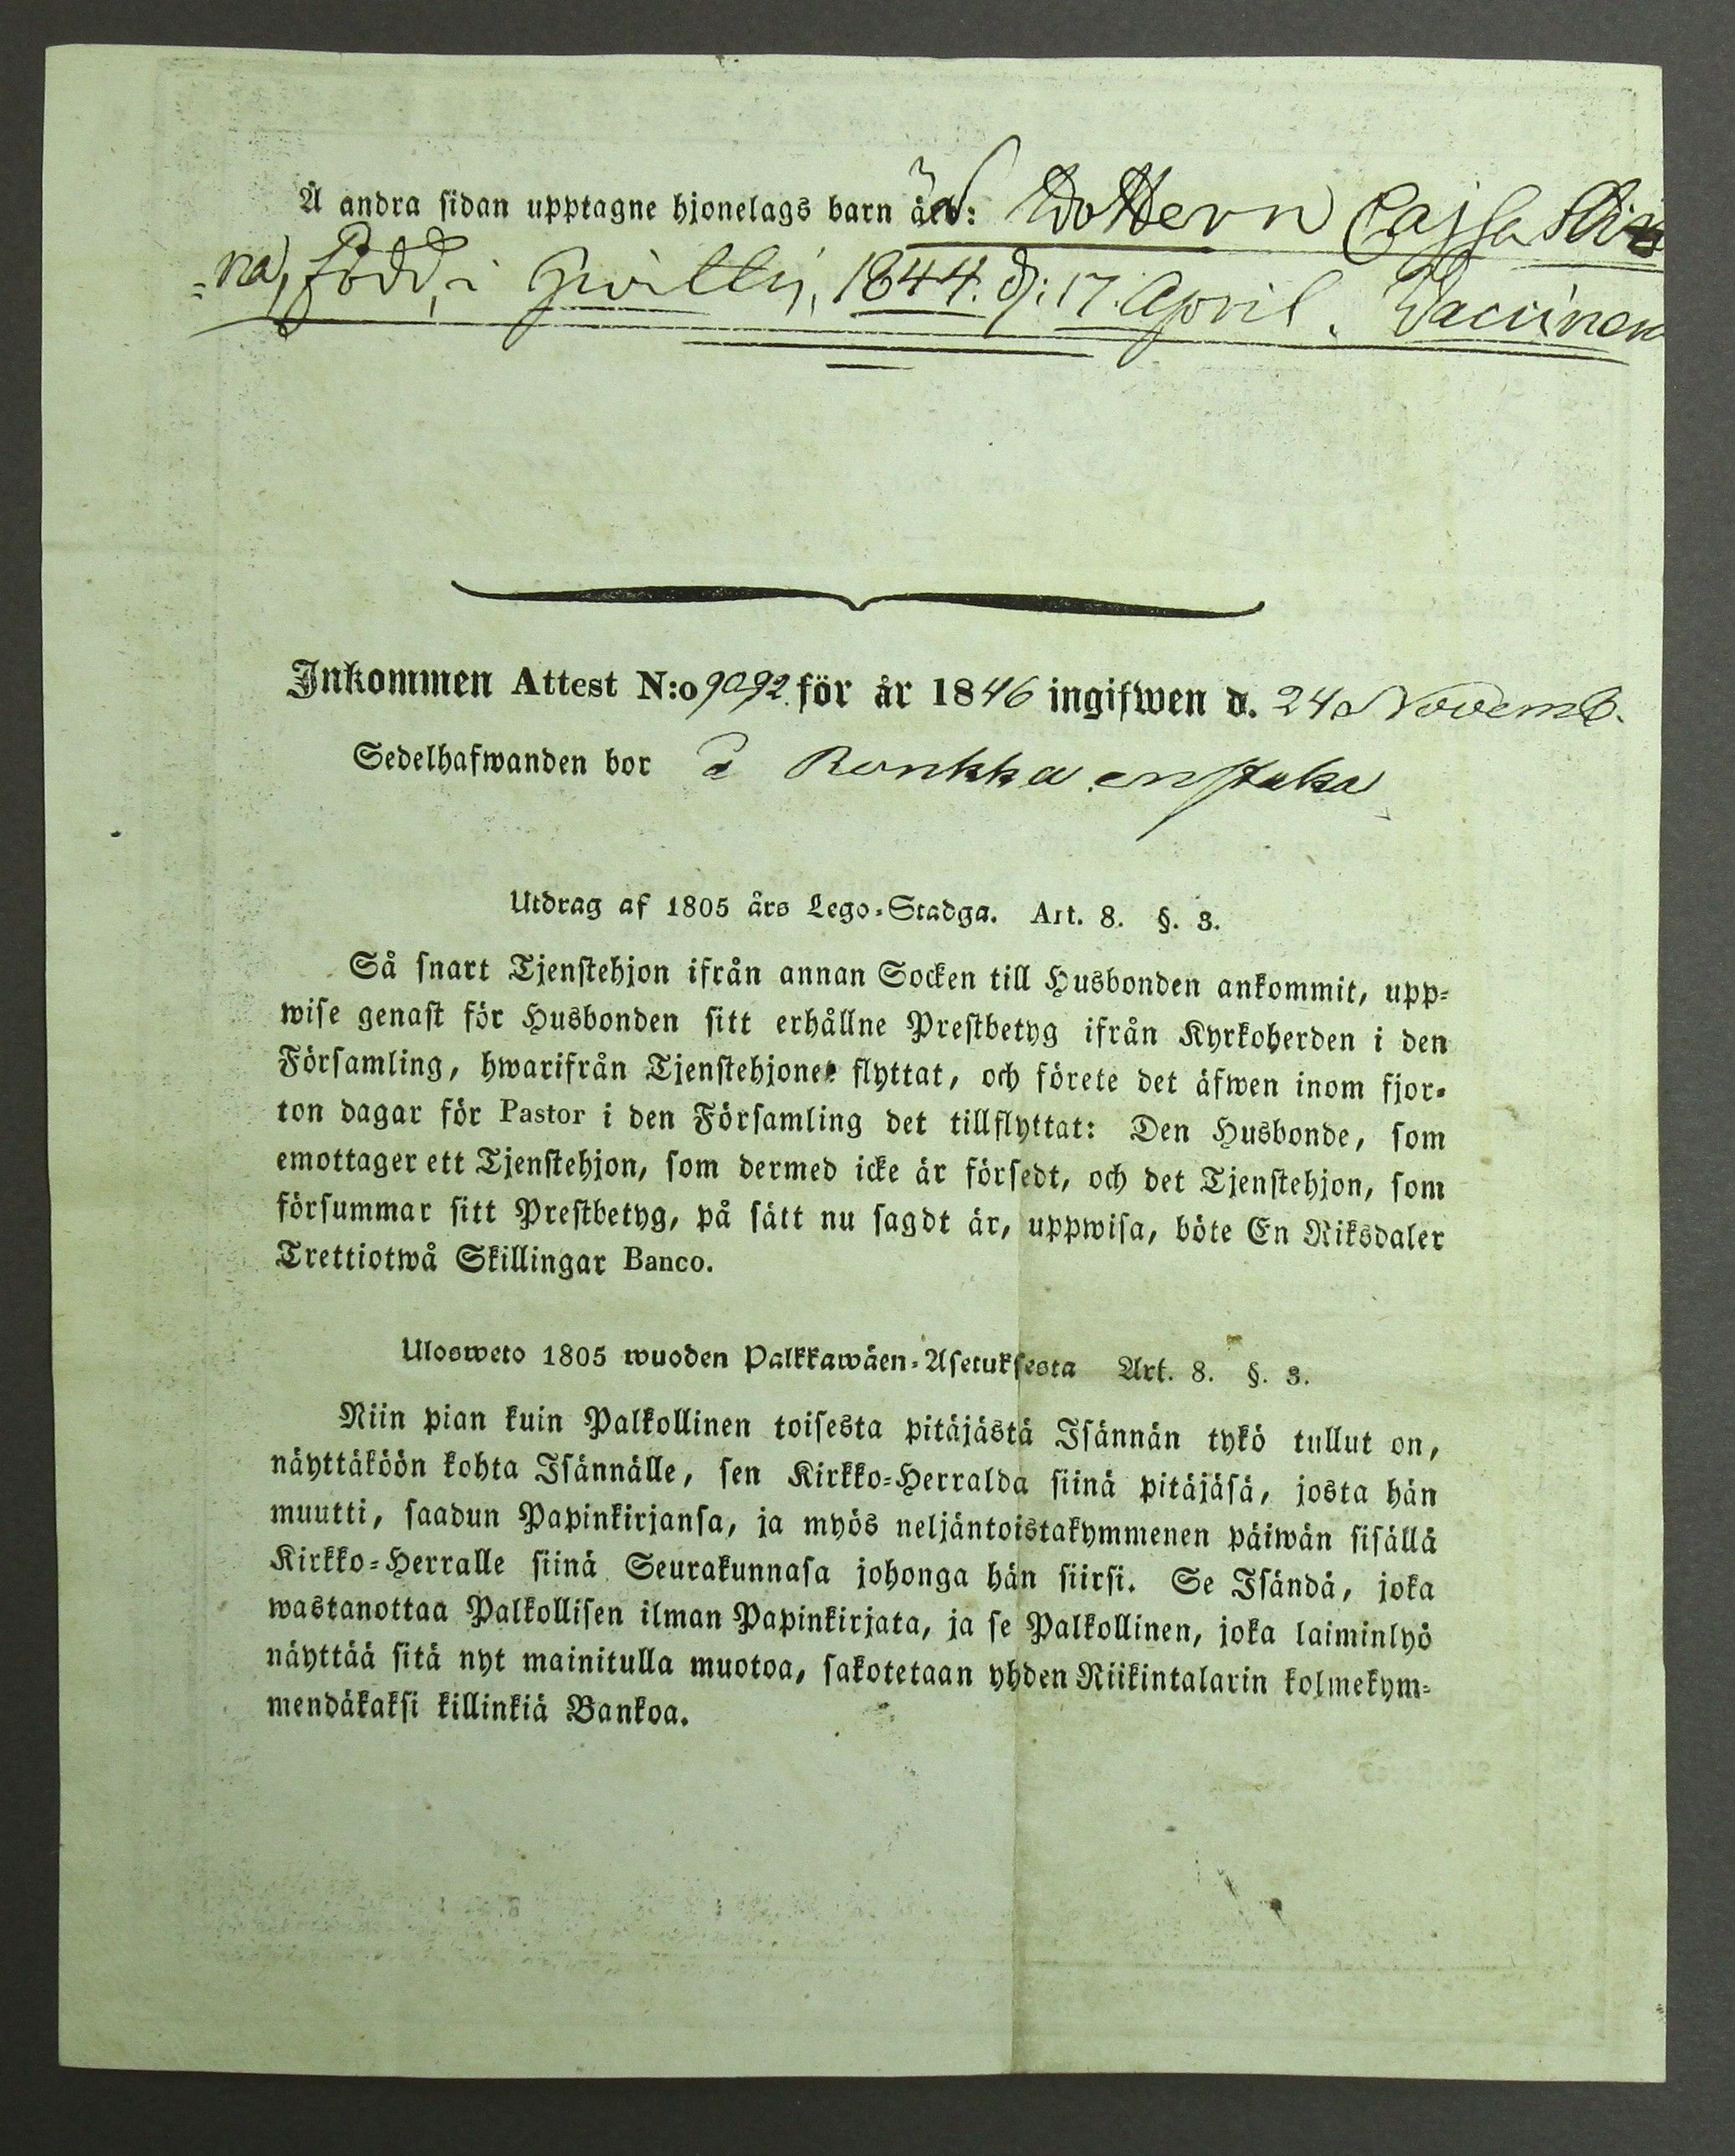 Å andra sidan upptagne hjonelags barn är: Dottern Cajsa Sti=
=na, född, i Huittis, 1844. d: 17. April. Vaccinen
Inkommen Attest N:o 9092. för år 1846 ingifwen d. 24 Novemb.
Sedelhafwanden bor å Runkka enstaka
Utdrag af 1805 års Lego-Stadga. Art. 8. §. 3.
Så snart Tjenstehjon ifrån annan Socken till Husbonden ankommit, upp=
wise genast för Husbonden sitt erhållne Prestbetyg ifrån Kyrkoherden i den
Församling, hwarifrån Tjenstehjonet flyttat, och förete det äfwen inom fjor=
ton dagar för Pastor i den Församling det tillflyttat: Den Husbonde, som
emottager ett Tjenstehjon, som dermed icke är försedt, och det Tjenstehjon, som
försummar sitt Prestbetyg, på sätt nu sagdt är, uppwisa, böte En Riksdaler
Trettiotwå Skillingar Banco.
Ulosweto 1805 wuoden Palkkawäen-Asetuksesta Art. 8. §. 3.
Niin pian kuin Palkollinen toisesta pitäjästä Isännän tykö tullut on,
näyttäköön kohta Isännälle, sen Kirkko=Herralda siinä pitäjäsä, josta hän
muutti, saadun Papinkirjansa, ja myös neljäntoistakymmenen päiwän sisällä
Kirkko=Herralle siinä Seurakunnasa johonga hän siirsi. Se Isändä, joka
wastanottaa Palkollisen ilman Papinkirjata, ja se Palkollinen, joka laiminlyö
näyttää sitä nyt mainitulla muotoa, sakotetaan yhden Riikintalarin kolmekym=
mendäkaksi killinkiä Bankoa.